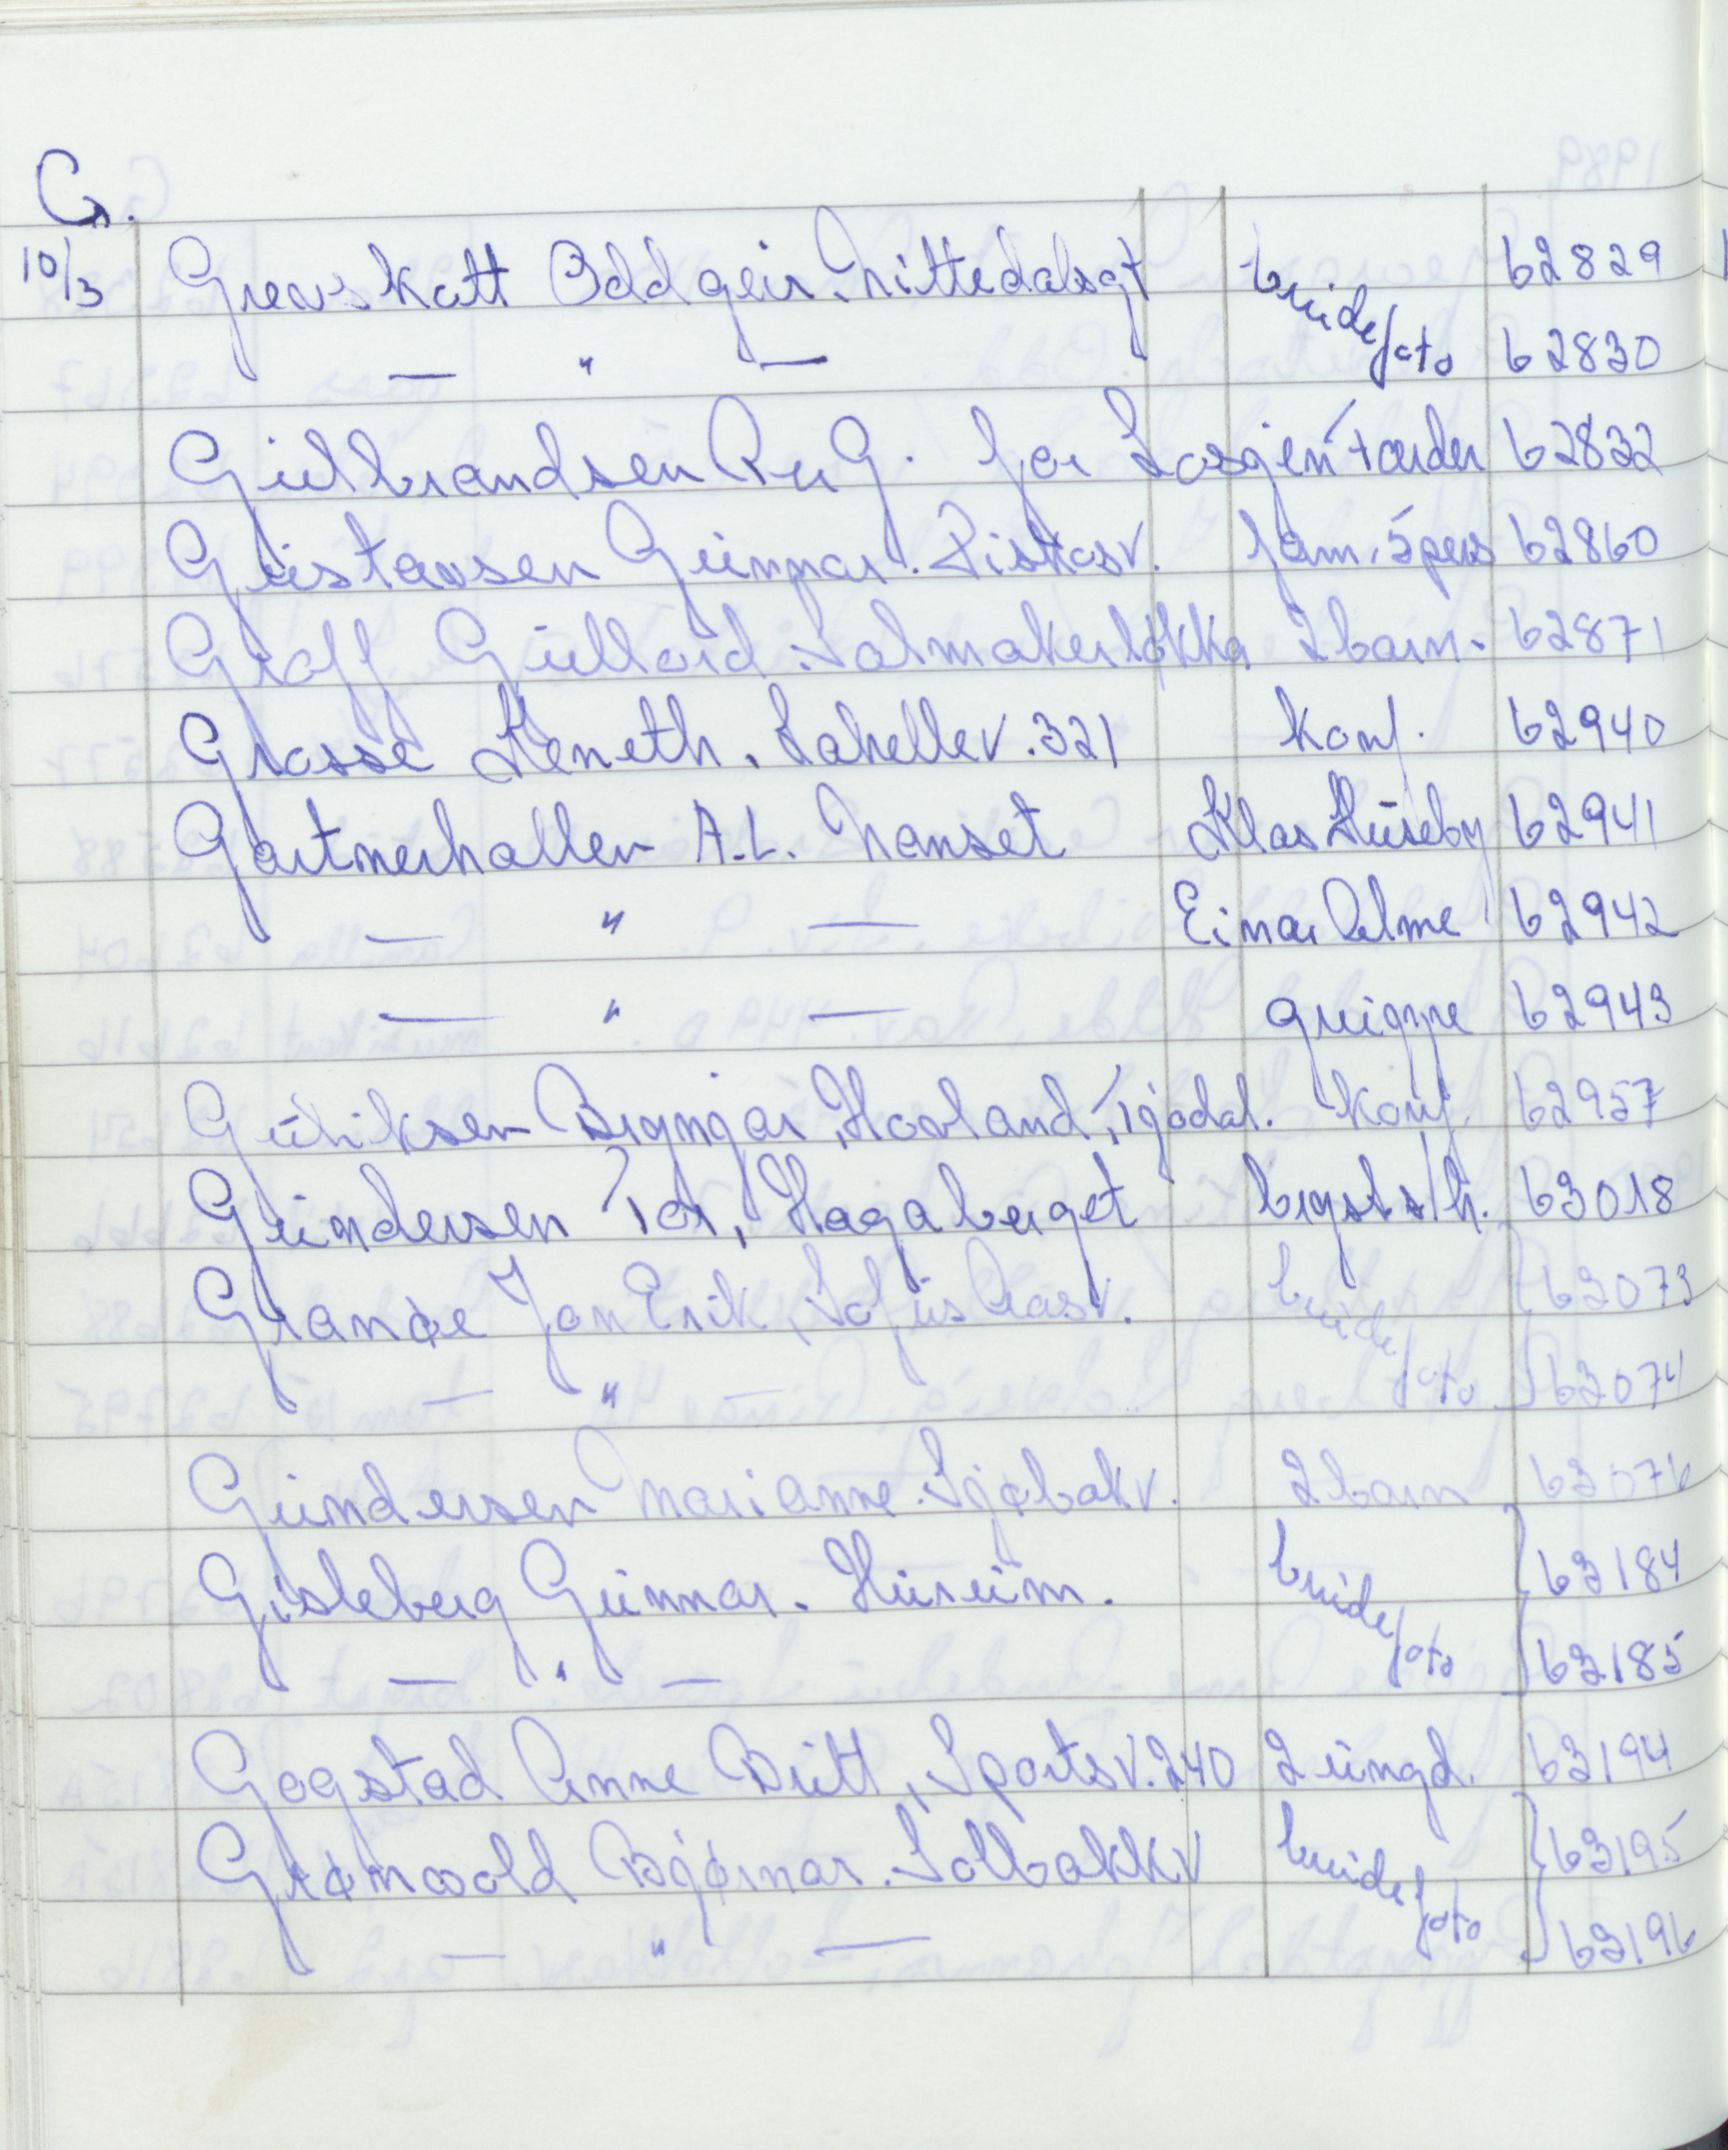 G.
10/3 Grevskott Oddgeir. Nittedalsgt brudefoto 62829
— " — 62830
Gulbrandsen Per G. for Losjen + order 62832
Gustavsen Gunnar. Piskosv. fam. 5 pers 62860
Groff Gullord. Salmakerløkka 2 barn. 62871
Grosse Keneth. Lahellev. 321 Konf. 62940
Gartnerhallen A.L. Nanset Klas Huseby 62941
— " — Einar Alme 62942
— " — gruppe 62943
Guliksen Bryngar, Hovland, Tjodal. Konf. 62957
Gundersen Tor, Hagaberget bryst s/h. 63018
Grande Jon Erik, Sofus Aasv. brudefoto 63073
— " — 63074
Gundersen Marianne. Sjøbakv. 2 barn 63076
Gisleberg Gunnar. Hurum. brudefoto 63184
— " — 63185
Gogstad Anne Britt, Sportsv. 240 2 ungd. 63194
Grønvold Bjørnar. Solbakkv brudefoto 63195
— " — 63196